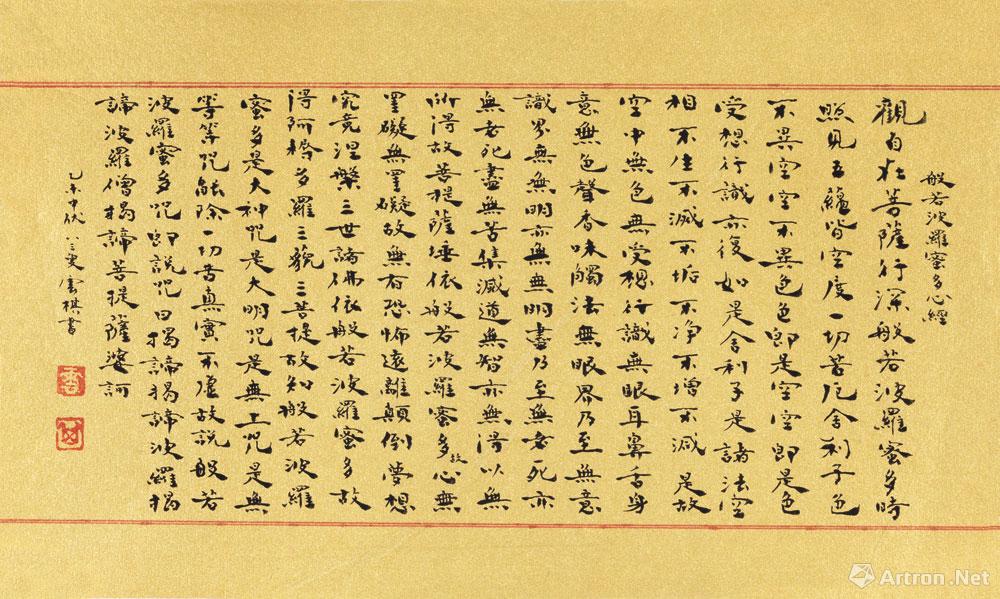 般若波羅蜜多心經
觀自在菩薩行深般若波羅蜜多時
照見五蘊皆空度一切苦厄舍利子色
不異空空不異色色即是空空即是色
受想行識亦復如是舍利子是諸法空
相不生不滅不垢不净不增不減是故
空中無色無受想行識無眼耳鼻舌身
意無色聲香味觸法無眼界乃至無意
識界無無明亦無無明盡乃至無老死亦
無老死盡無苦集滅道無智亦無得以無
所得故菩提薩埵依般若波羅蜜多故心無
罣礙無罣礙故無有恐怖遠離顛倒夢想
究竟涅槃三世諸佛依般若波羅蜜多故
得阿耨多羅三藐三菩提故知般若波羅
蜜多是大神咒是大明咒是無上咒是無
等等咒能除一切苦真實不虛故說般若
波羅蜜多咒即說咒曰揭諦揭諦波羅揭
諦波羅僧揭諦菩提薩婆訶
乙未中伏雲棋書
Artron.Net